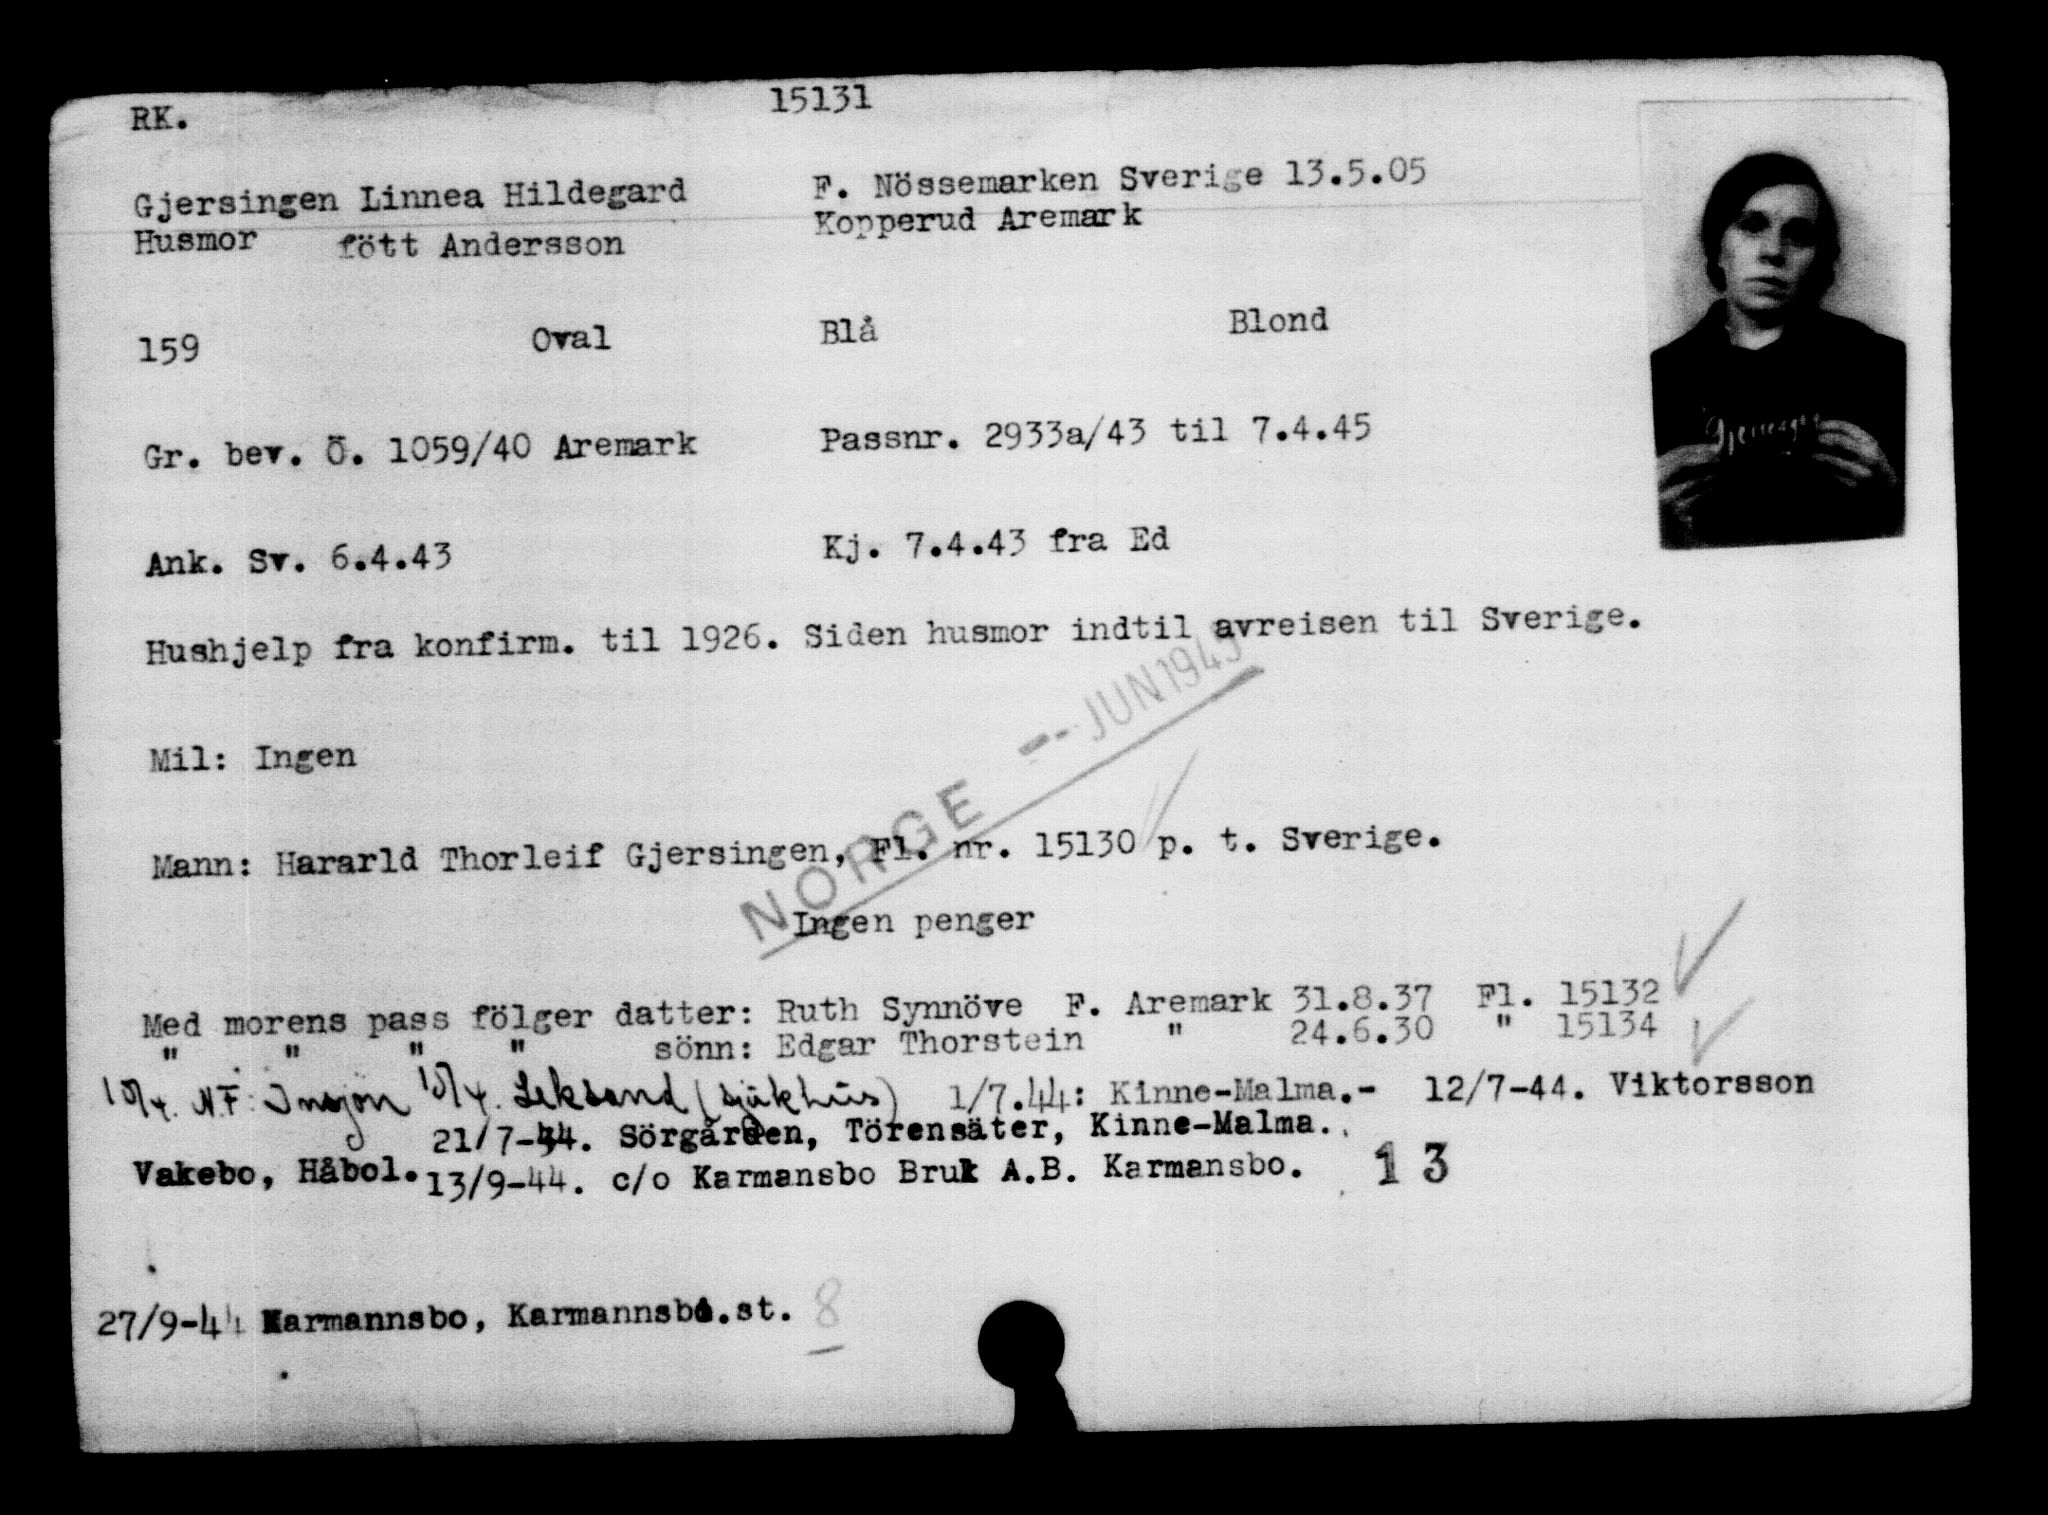 RK. 15131
Gjersingen Linnea Hildegard F. Nössemarken Sverige 13.5.05
Husmor fött Andersson Kopperud Aremark
159 Oval Blå Blond
Gr. bev. Ö. 1059/40 Aremark Passnr. 2933a/43 til 7.4.45
Ank. Sv. 6.4.43 Kj. 7.4.43 fra Ed
Hushjelp fra konfirm. til 1926. Siden husmor indtil avreisen til Sverige.
NORGE -- JUN 1945
Mil: Ingen
Mann: Hararld Thorleif Gjersingen, Fl. nr. 15130 p. t. Sverige.
Ingen penger
Med morens pass fölger datter: Ruth Synnöve F. Aremark 31.8.37 Fl. 15132
" " " " sönn: Edgar Thorstein " 24.6.30 " 15134
10/4. N.F: Insjön 10/4. Leksand (sjukhus) 1/7.44: Kinne-Malma.- 12/7-44. Viktorsson
21/7-44. Sörgården, Törensäter, Kinne-Malma.
Vakebo, Håbol. 13/9-44. c/o Karmansbo Bruk A.B. Karmansbo. 13
27/9-44 Karmannsbo, Karmannsbo.st. 8